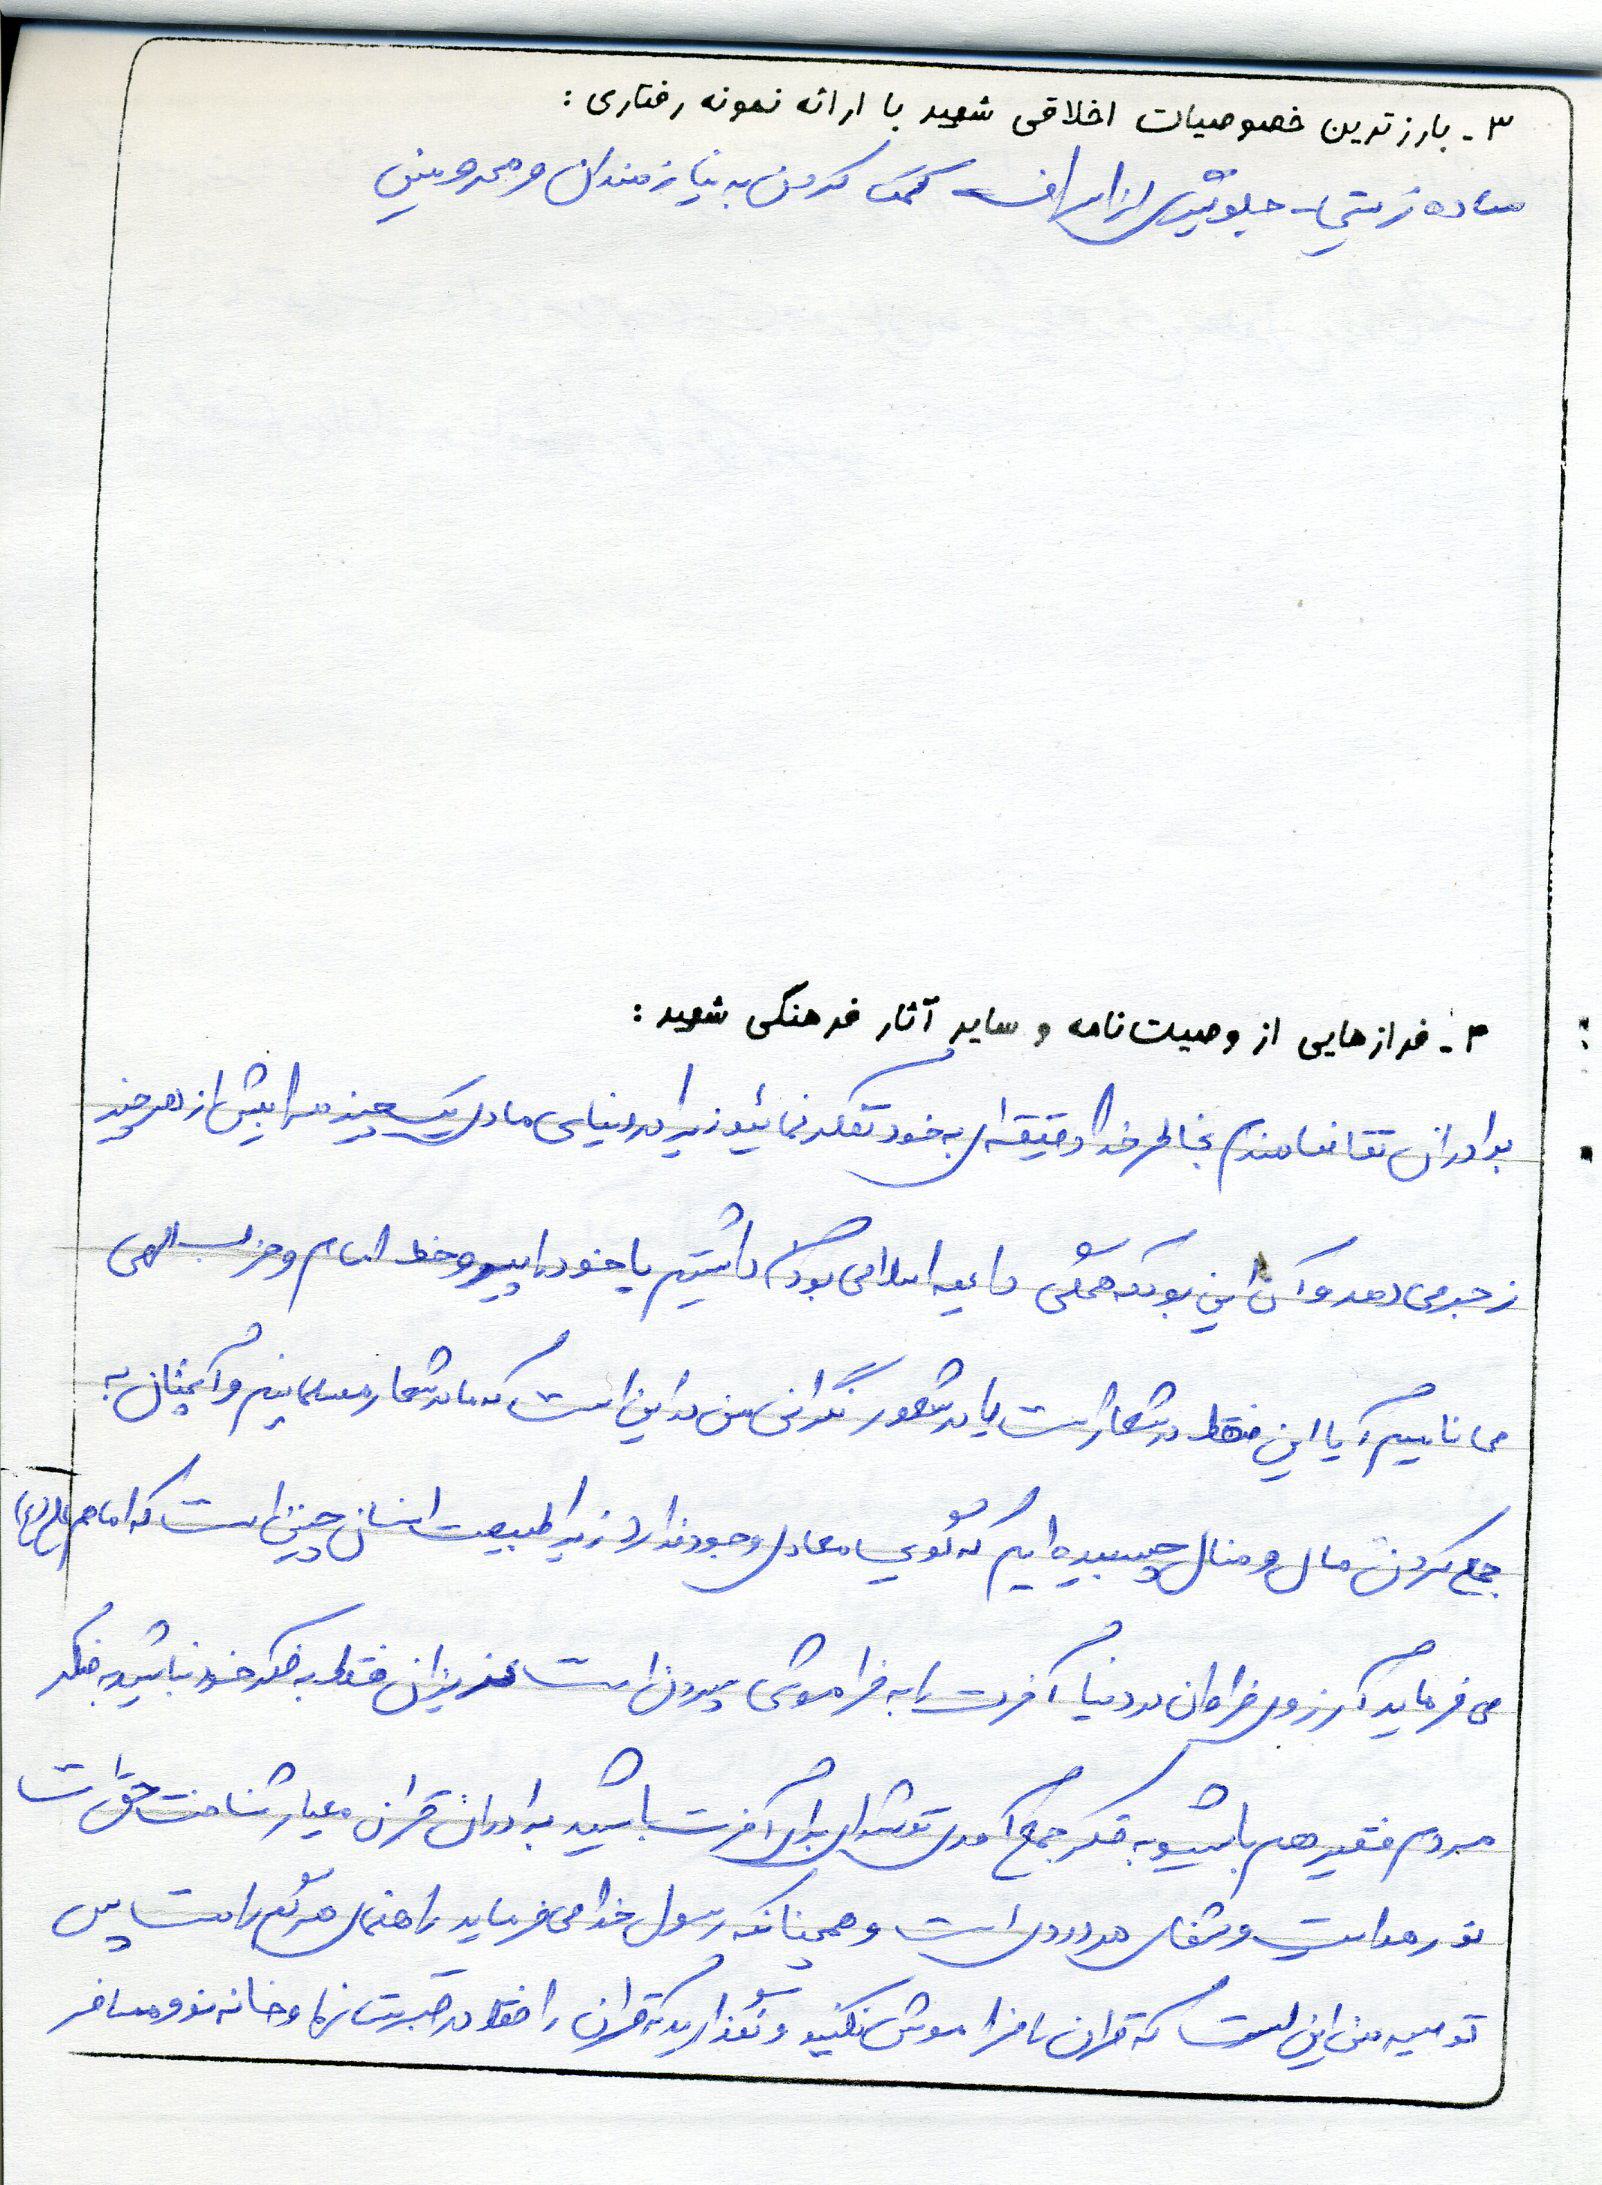 ۳ - بارزترین خصوصیات اخلاقی شهید با ارائه نمونه رفتاری :
ساده زیستی - جلوگیری از اسراف - کمک کردن به نیازمندان و محرومین
۴ - فرازهایی از وصیت‌نامه و سایر آثار فرهنگی شهید :
برادران تقاضامندم بخاطر خدا دقیقه ای به خود تفکر نمائید زیرا در دنیای مادی یک چیز مرا بیش از هر چیز
زجر می دهد و آن این بود که همگی داعیه اسلامی بودن داشتیم یا خود را پیرو خط امام و حزب الهی
می نامیم آیا این فقط در شعار است یا در شعور نگرانی من در این است که ما در شعار مسلمانیم و آنچنان به
جمع کردن مال و منال چسبیده ایم که گویی معادی وجود ندارد زیرا طبیعت انسان چنین است که امام علی (ع)
می فرماید آرزوی فراوان در دنیا آخرت را به فراموشی سپردن است عزیزان فقط به فکر خود نباشید به فکر
مردم فقیر هم باشید و به فکر جمع آوری توشه ای برای آخرت باشید برادران قرآن معیار شناخت حق است
نور هدایت و شفای هر دردی است و همچنانکه رسول خدا می فرماید راهنمای هر گمراه است پس
توصیه من این است که قرآن را فراموش نکنید و نگذارید که قرآن را فقط در قبرستانها و خانه نو و مسافر